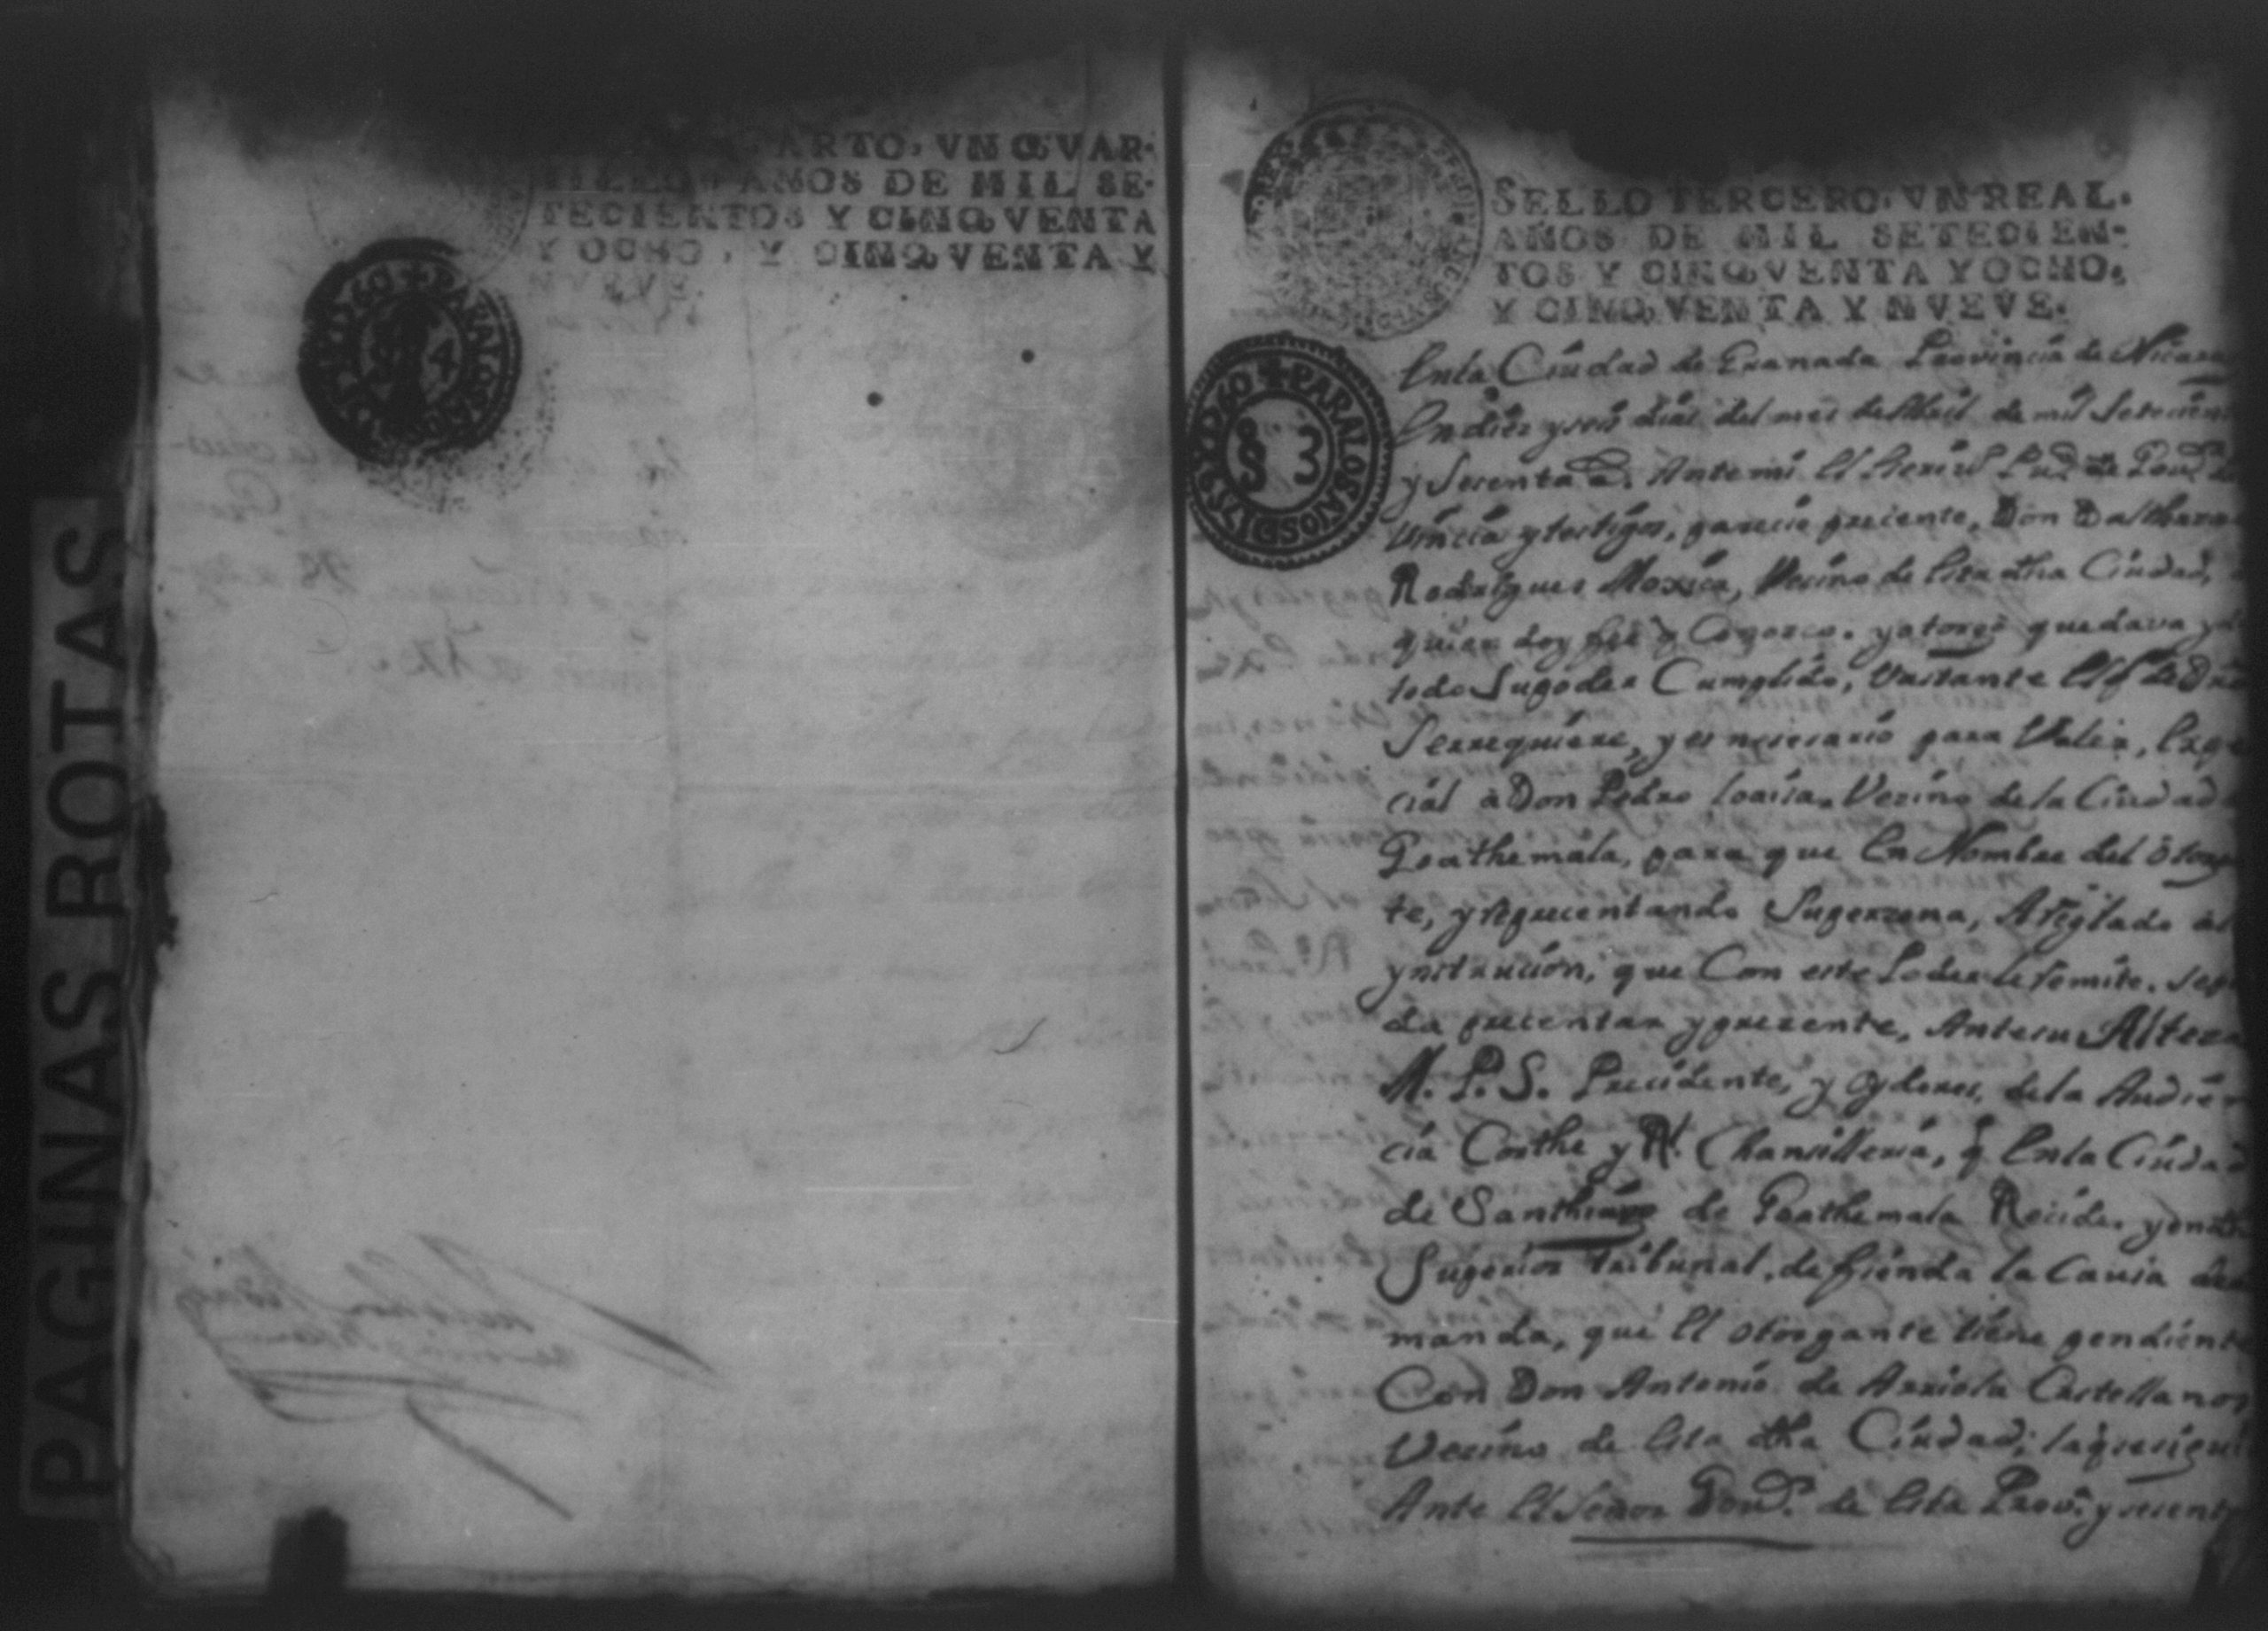 PAGINAS ROTAS
ARTO, VN QVAR-
TILLO, AÑOS DE MIL SE-
TECIENTOS Y CINQVENTA
Y OCHO, Y CINQVENTA Y
NVEVE
PARA LOS AÑOS D 1759 Y D 60
S 4
SELLO TERCERO, VN REAL.
AÑOS DE MIL SETECIEN-
TOS Y CINQVENTA Y OCHO,
Y CINQVENTA Y NVEVE.
PARA LOS AÑOS D 1759 Y D 60
S 3
En la Ciudad de Granada Provincia de Nicara
En diez y seis dias del mes de Abril de mil Setecien
y Sesenta a. Ante mi El
y testigos, parecio precente, Don Balthazar
Rodrigues Moxica, Vecino de Esta dha Ciudad,
quien doy fee q Conozco. y otorgó que dava y
todo Su poder Cumplido, Vastante El q de Dro
Se rrequiere, y es necesario para Valer, Espe
cial à Don Pedro Vecino de la Ciudad
Goathemala, para que En Nombre del òtorg
te, y rreprecentando Su perzona, Areglado àl
ynstrucción, que Con este Poder le rremite. Se p
da precentar y prezente, Ante su Alteza
M. P. S. Precidente, y Oydores, de la Audien
cia Corthe y Rl. Chansilleria, q̃ En la Ciudad
de Santhiago de Goathemala Recide. y en
Superior tribunal, defienda la Causa
manda, que El otorgante tiene pendiente
Con Don Antonio de Arriola Castellanos
Vecino de Esta dha Ciudad; la q̃ se sigui
Ante El Señor Govor. de Esta Prova. y